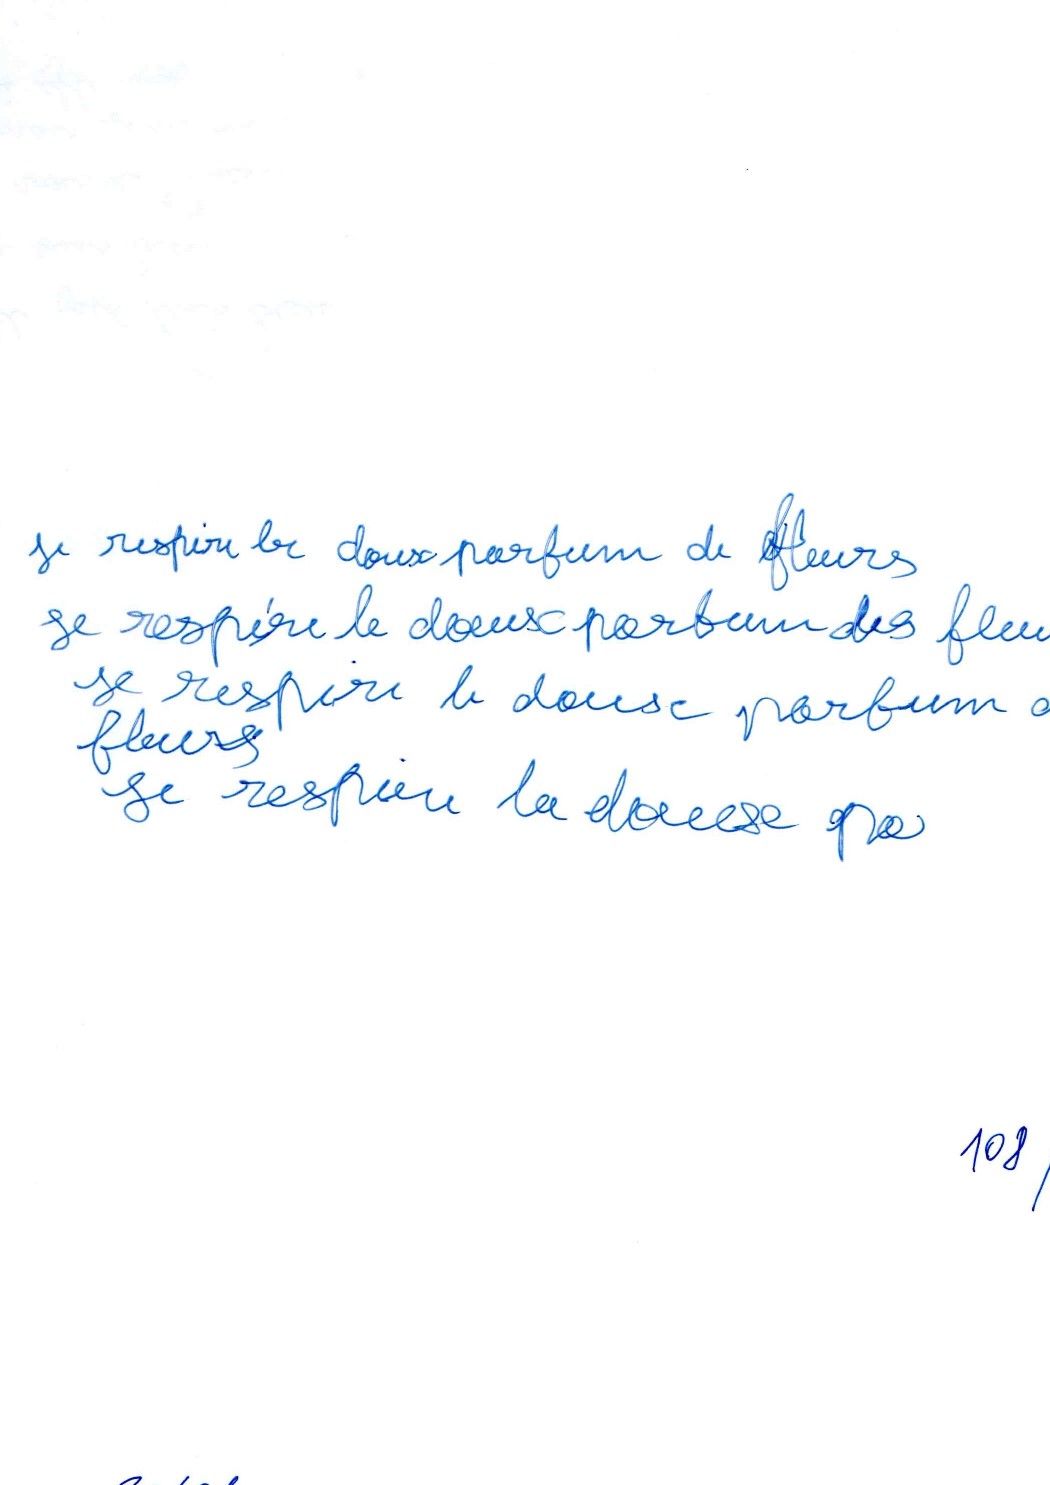 je respire le doux parfum de fleurs
je respire le doux parfum des fleu
je respire le doux parfum d
fleurs
je respire la douce pa
108/